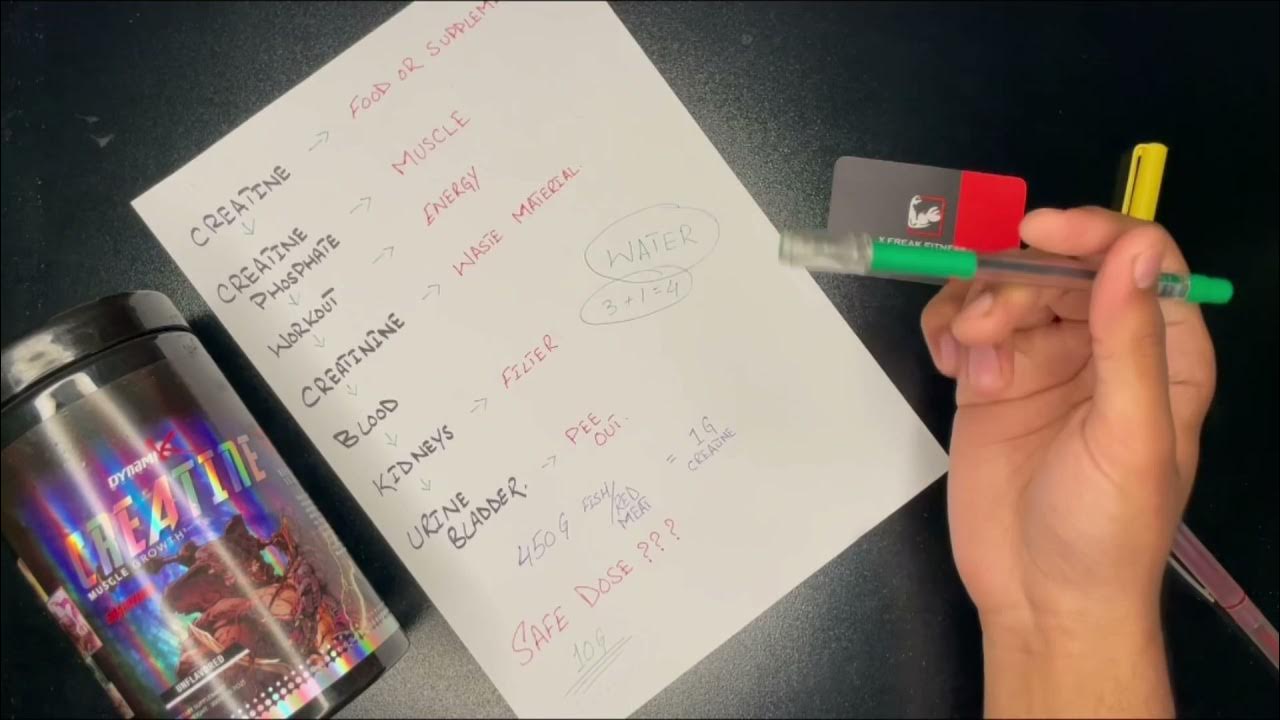 CREATINE → FOOD OR
CREATINE
PHOSPHATE → MUSCLE
WORKOUT → ENERGY
CREATININE → WASTE MATERIAL
BLOOD
KIDNEYS → FILTER
URINE
BLADDER. → PEE
OUT.
WATER
3+1=4
450G FISH/
RED
MEAT
= 1G
CREATINE
SAFE DOSE ???
10G
DYNAMIK
CREATINE
MUSCLE GROWTH
UNFLAVORED
X FREAK FITNESS